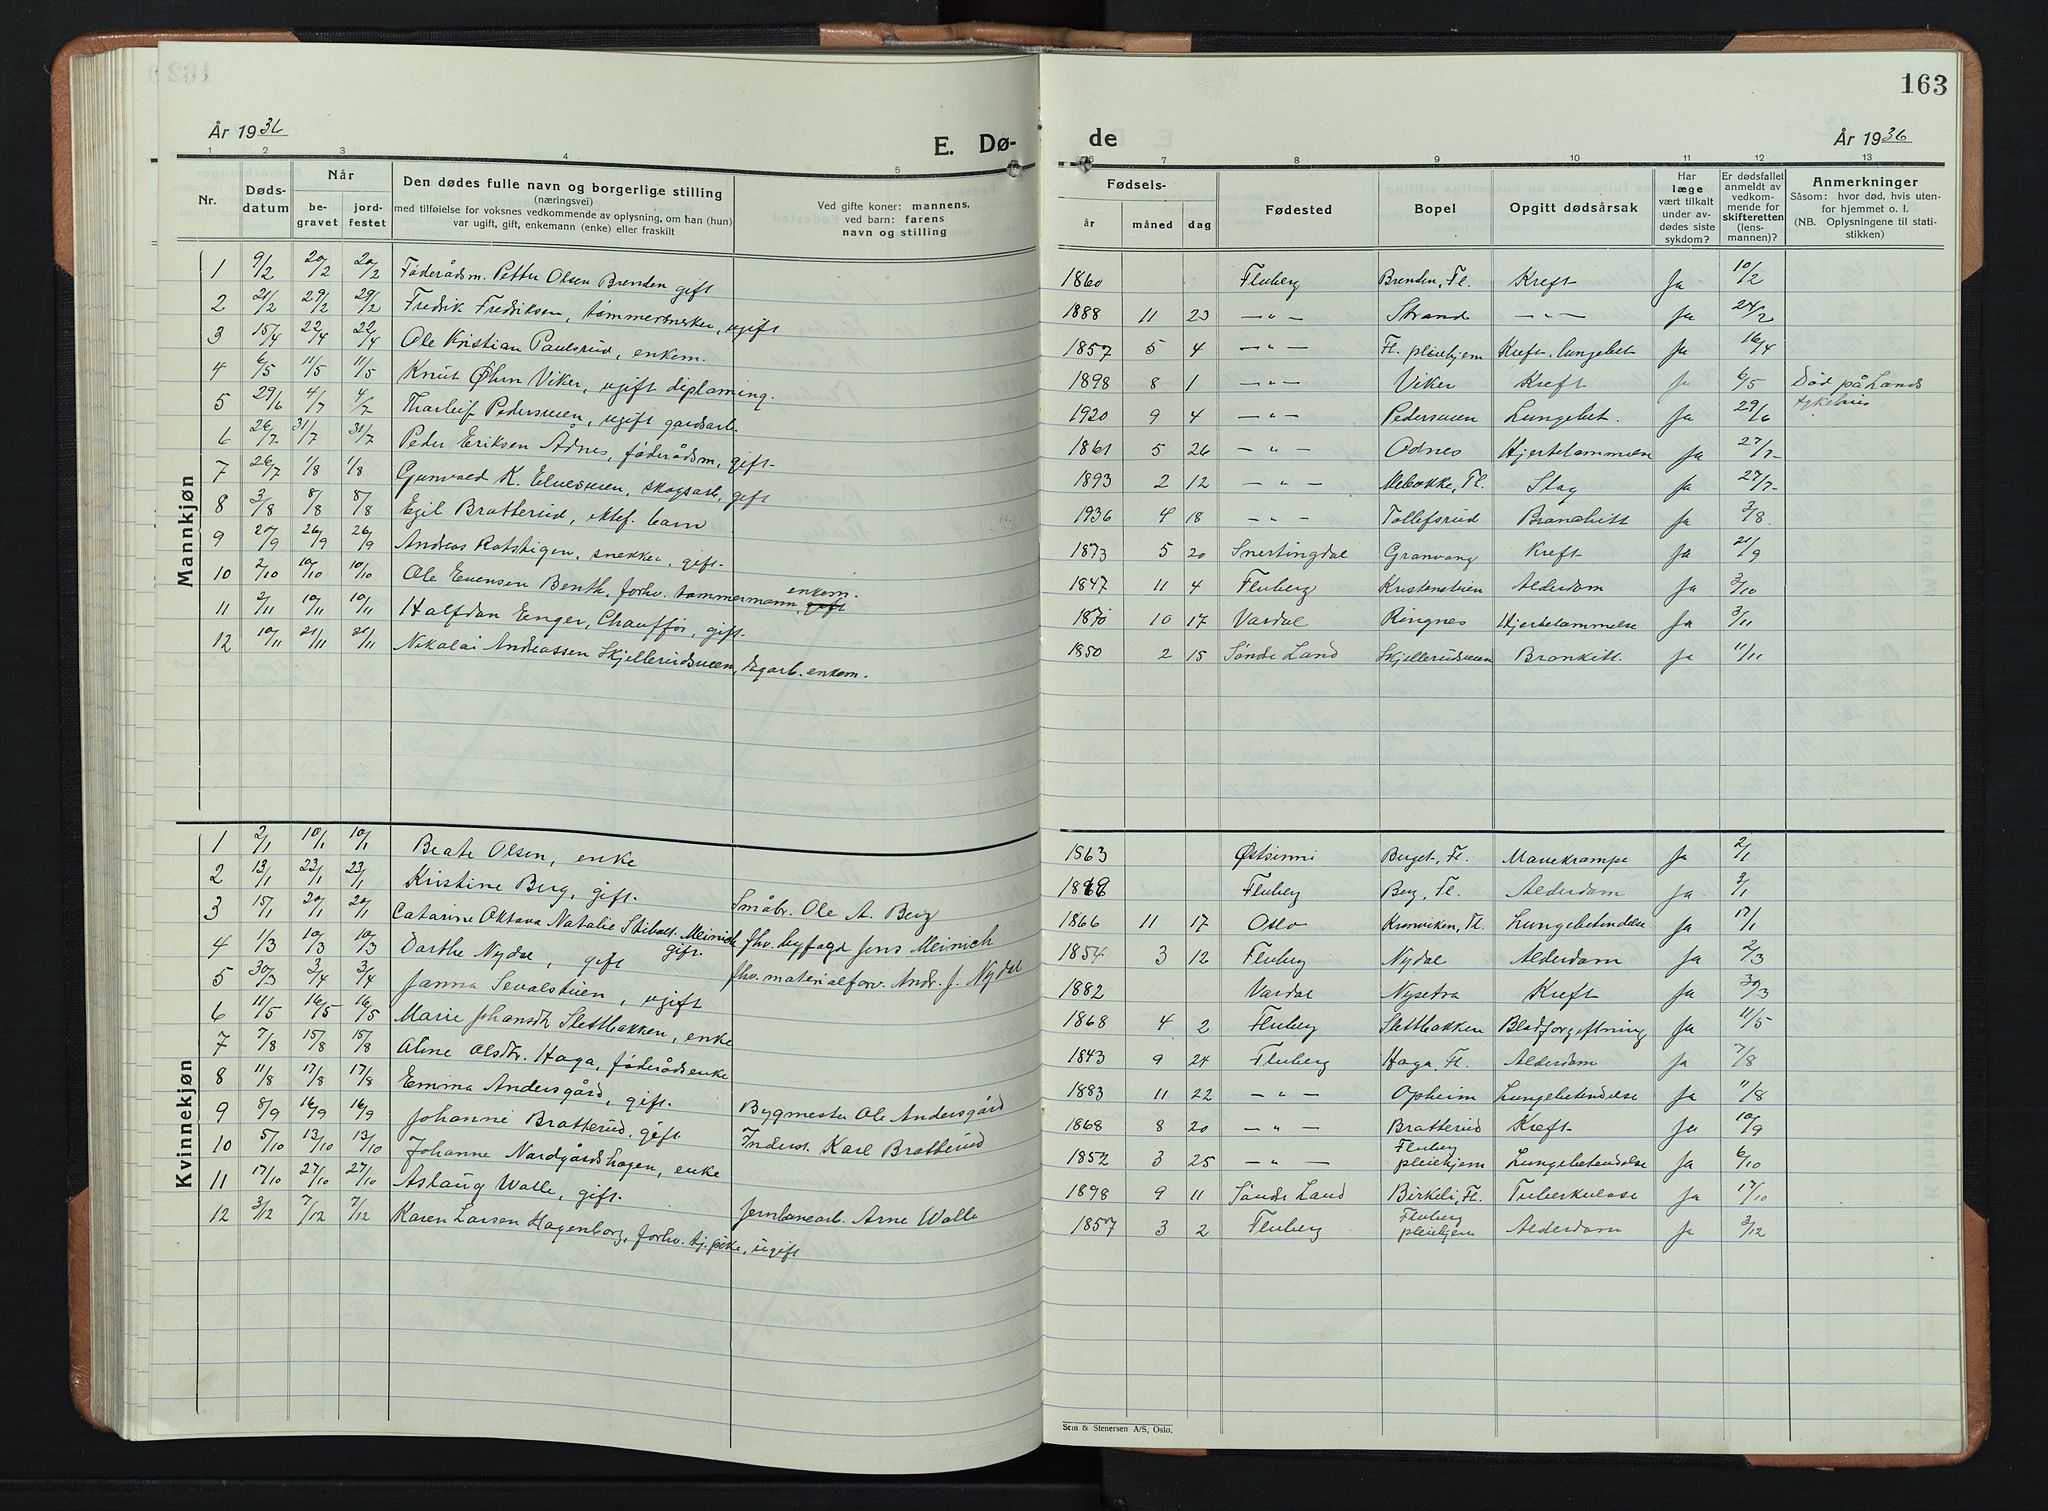 163
År 1936
E. Dø-
de
År 1936
1 2 3 4 5 6 7 8 9 10 11 12 13
Nr. Døds- datum Når be- gravet jord- festet
Den dødes fulle navn og borgerlige stilling
(næringsvei)
med tilføielse for voksnes vedkommende av oplysning, om han (hun)
var ugift, gift, enkemann (enke) eller fraskilt
Ved gifte koner: mannens,
ved barn: farens
navn og stilling
Fødsels- år måned dag
Fødested
Bopel
Opgitt dødsårsak
Har læge vært tilkalt under av- dødes siste sykdom?
Er dødsfallet anmeldt av vedkom- mende for skifteretten (lens- mannen)?
Anmerkninger
Såsom: hvor død, hvis uten-
for hjemmet o. l.
(NB. Oplysningene til stati-
stikken)
Mannkjøn
1 9/2 20/2 20/2 Føderådsm. Petter Olsen Brenden gift 1860 Fluberg Brenden, Fl. Kreft Ja 10/2
2 21/2 29/2 29/2 Fredrik Fredriksen, tømmermerker, ugift 1888 11 23 — " — Strand — " — Ja 24/2
3 15/4 22/4 22/4 Ole Kristian Paulsrud, enkem. 1857 5 4 — " — Fl. pleiehjem Kreft, lungebet Ja 16/4
4 6/5 11/5 11/5 Knut Øhrn Viker, ugift diploming. 1898 8 1 — " — Viker Kreft Ja 6/5 Död på Lands sykehus
5 29/6 4/7 4/7 Tharleif Pedersveen, ugift gardsarb. 1920 9 4 — " — Pedersveen Lungebet. Ja 29/6
6 26/7 31/7 31/7 Peder Eriksen Ådnes, föderådsm, gift. 1861 5 26 — " — Odnes Hjertelammelse Ja 27/7
7 26/7 1/8 1/8 Gunvald K. Elvesveen, skogsarb, gift 1893 2 12 — " — Mebakke, Fl. Slag Ja 27/7
8 3/8 8/8 8/8 Egil Bratterud, ektef. barn 1936 4 18 — " — Tollefsrud Bronchitt Ja 3/8
9 20/9 26/9 26/9 Andreas Rotstigen, snekker, gift. 1873 5 20 Snertingdal Granvang Kreft Ja 21/9
10 2/10 10/10 10/10 Ole Evensen Benth, forhv. tømmermann, gift enkem. 1847 11 4 Fluberg Kristenstuen Alderdom Ja 3/10
11 2/11 10/11 10/11 Halfdan Enger, Chauffør, gift. 1870 10 17 Vardal Ringnes Hjertelammelse Ja 3/11
12 10/11 21/11 21/11 Nikolai Andreassen Skjellerudsveen, Dagarb. enkem. 1850 2 15 Søndre Land Skjellerudsveen Bronkitt. Ja 11/11
Kvinnekjøn
1 2/1 10/1 10/1 Beate Olsen, enke 1863 Østsinni Berget, Fl. Mavekrampe Ja 2/1
2 13/1 23/1 23/1 Kristine Berg, gift. Småbr. Ole A. Berg Fluberg Berg, Fl. Alderdom Ja 3/1
3 15/1 20/1 20/1 Catarine Oktava Natalie Stibolt Meinich gift. fhv. byfogd Jens Meinich 1866 11 17 Oslo Kronviken, Fl. Lungebetendelse Ja 17/1
4 1/3 10/3 10/3 Dorthe Nydal, gift fhv. materialforv. Andr. J. Nydal 1854 3 12 Fluberg Nydal Alderdom Ja 2/3
5 30/3 3/4 3/4 Janna Sevalstuen, ugift 1882 Vardal Nysetra Kreft Ja 30/3
6 11/5 16/5 16/5 Marie Johansdtr Slettbakken, enke 1868 4 2 Fluberg Slettbakken Blodforgiftning Ja 11/5
7 7/8 15/8 15/8 Oline Olsdtr. Haga, føderådsenke 1843 9 24 Fluberg Haga, Fl. Alderdom Ja 7/8
8 11/8 17/8 17/8 Emma Andersgård, gift. Bygmester Ole Andersgård 1883 11 22 — " — Opheim Lungebetendelse Ja 11/8
9 8/9 16/9 16/9 Johanne Bratterud, gift. Inderst. Karl Bratterud 1868 8 20 — " — Bratterud Kreft Ja 10/9
10 5/10 13/10 13/10 Johanne Nordgårdshagen, enke 1852 3 25 — " — Fluberg pleiehjem Lungebetendelse Ja 6/10
11 17/10 27/10 27/10 Aslaug Wolle, gift. Jernbanearb. Arne Wolle 1898 9 11 Søndre Land Birkeli, Fl. Tuberkulose Ja 17/10
12 3/12 7/12 7/12 Karen Larsen Hagenborg, forhv. tj. pike, ugift 1857 3 2 Fluberg Fluberg pleiehjem Alderdom Ja 3/12
Sem & Stenersen A/S, Oslo.